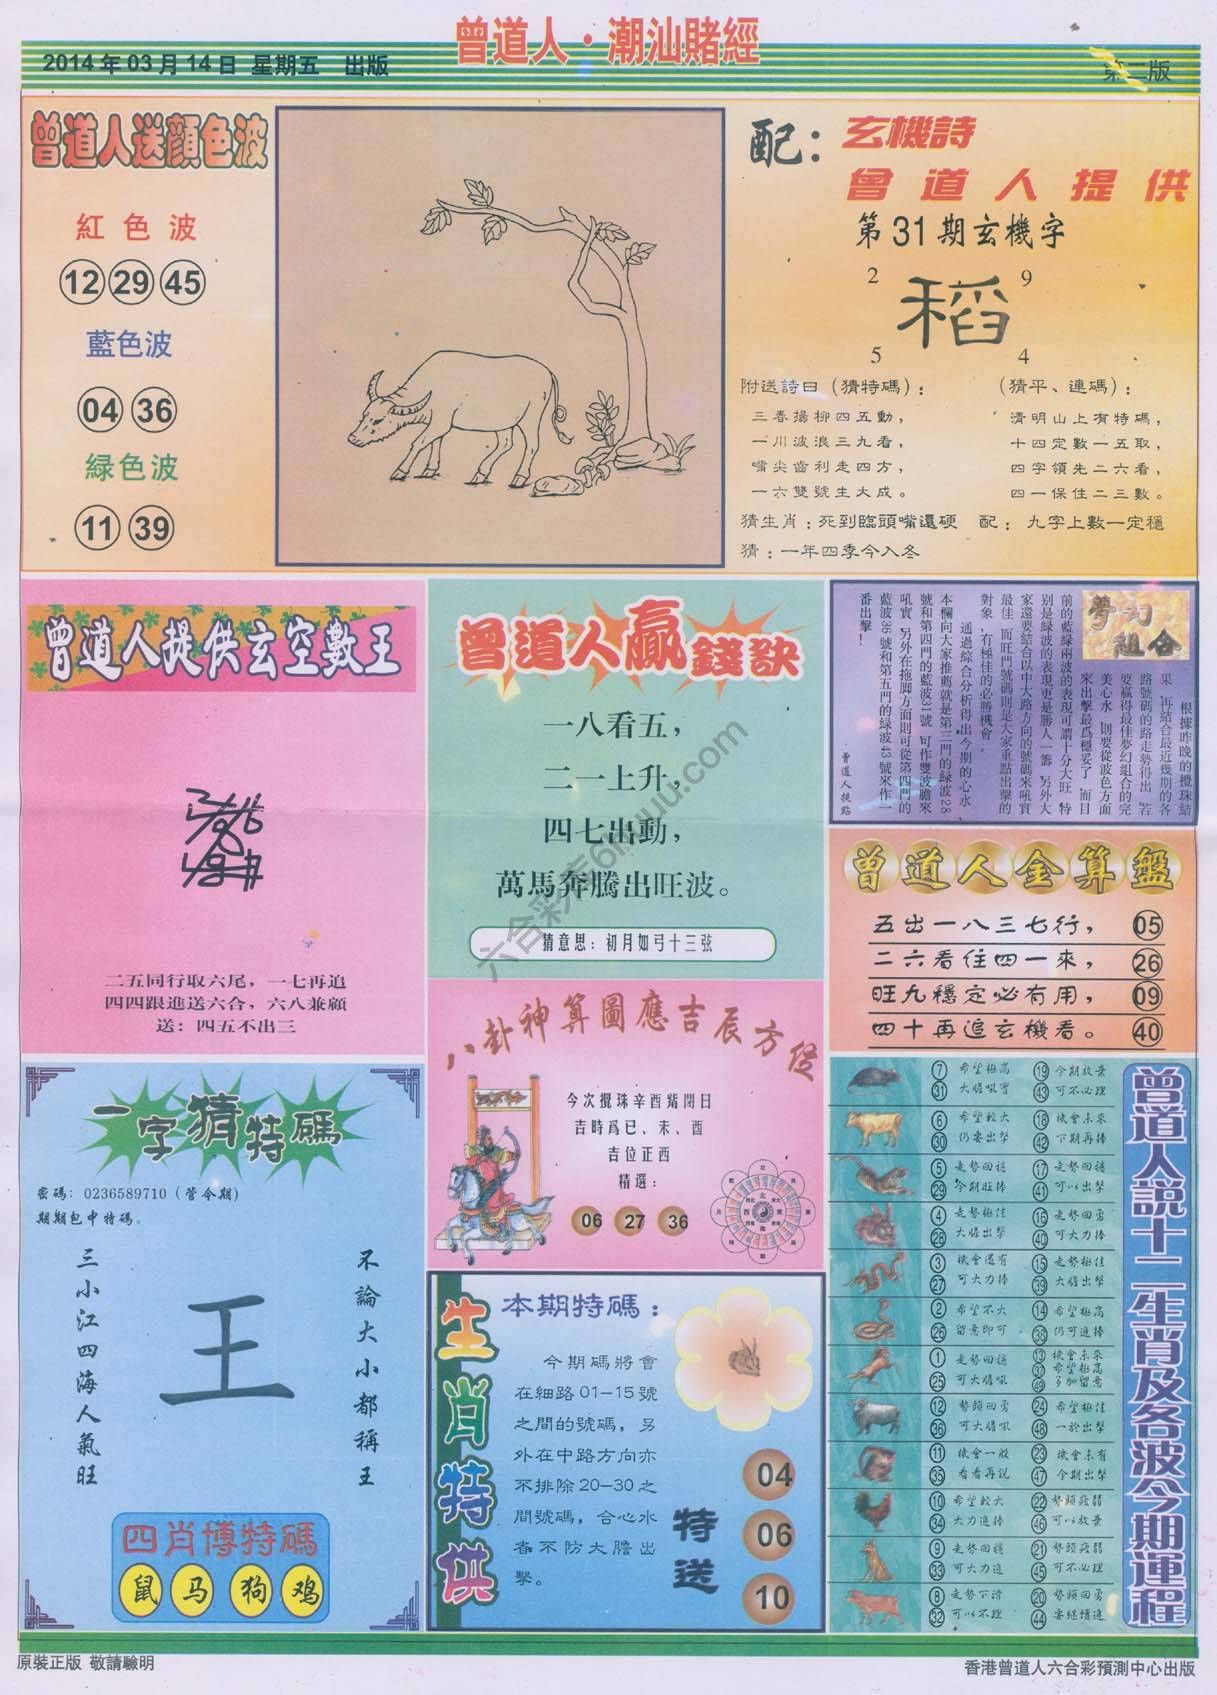 曾道人·潮汕賭經
2014年03月14日 星期五 出版
第二版
曾道人送顔色波
紅色波
12 29 45
藍色波
04 36
緑色波
11 39
配：
玄機詩
曾道人提供
第31期玄機字
2 9
稻
5 4
附送詩曰（猜特碼）：
三春揚柳四五動，
一川波浪三九看，
嘴尖齒利走四方，
一六雙號生大成。
（猜平、連碼）：
清明山上有特碼，
十四定數一五取，
四字領先二六看，
四一保住二三數。
猜生肖：死到臨頭嘴還硬 配：九字上數一定穩
猜：一年四季今入冬
曾道人提供玄空數王
二五同行取六尾，一七再追
四四跟進送六合，六八兼顧
送：四五不出三
曾道人贏錢訣
一八看五，
二一上升，
四七出動，
萬馬奔騰出旺波。
猜意思：初月如弓十三弦
夢幻組合
根據昨晚的攪珠結
果 再結合最近幾期的各
路號碼的路走勢得出 若
要贏得最佳夢幻組合的完
美心水 則要從波色方面
來出擊最爲穩妥了 而目
前的藍緑兩波的表現可謂十分大旺 特
别是緑波的表現更是勝人一籌 另外大
家還要結合以中大路方向的號碼來吼實
最佳 而旺門號碼則是大家重點出擊的
對象 有極佳的必勝機會
通過綜合分析得出今期的心水
本欄向大家推薦就是第三門的緑波28
號和第四門的藍波31號 可作雙波膽來
吼實 另外在拖脚方面則可從第四門的
藍波36號和第五門的緑波43號來作一
番出擊！
曾道人提點
曾道人金算盤
五出一八三七行， 05
二六看住四一來， 26
旺九穩定必有用， 09
四十再追玄機看。 40
一字猜特碼
密碼：0236589710（管令期）
期期包中特碼。
不論大小都稱王
王
三小江四海人氣旺
四肖博特碼
鼠 马 狗 鸡
八卦神算圖應吉辰方位
今次攪珠辛酉㛃閉日
吉時爲已、未、酉
吉位正西
精選：
06 27 36
生肖特供
本期特碼：
今期碼將會
在細路01—15號
之間的號碼，另
外在中路方向亦
不排除20—30之
間號碼，合心水
者不防大膽出
擊。
特送
04
06
10
曾道人說十二生肖及各波今期運程
7 希望極高 19 今期放棄
31 大膽吼實 43 可不必理
6 希望較大 18 機會未來
30 仍要出擊 42 下期再捧
5 走勢回穩 17 走勢回穩
29 今期旺捧 41 可以出擊
4 走勢極佳 16 走勢回勇
28 大膽出擊 40 可大力捧
3 機會還有 15 走勢極佳
27 可大力捧 39 大膽出擊
2 希望不大 14 希望極高
26 留意即可 38 仍可追捧
1 走勢回穩 13 機會未來
25 可大膽吼 37 希望極高
49 多加留意
12 勢頭回勇 24 希望極佳
36 可大膽吼 48 一於出擊
11 機會一般 23 機會未有
35 看看再説 47 今期出擊
10 希望較大 22 勢頭疲弱
34 大力追捧 46 可以放棄
9 走勢回穩 21 勢頭疲弱
33 可大力追 45 可不必理
8 走勢下滑 20 勢頭回勇
32 可以不理 44 要繼續追
六合彩库6huuu.com
原裝正版 敬請驗明
香港曾道人六合彩預測中心出版